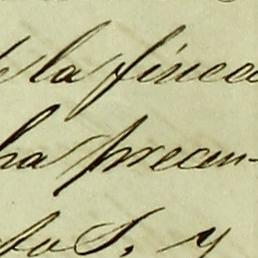 la finca
ha presen-
to S, y